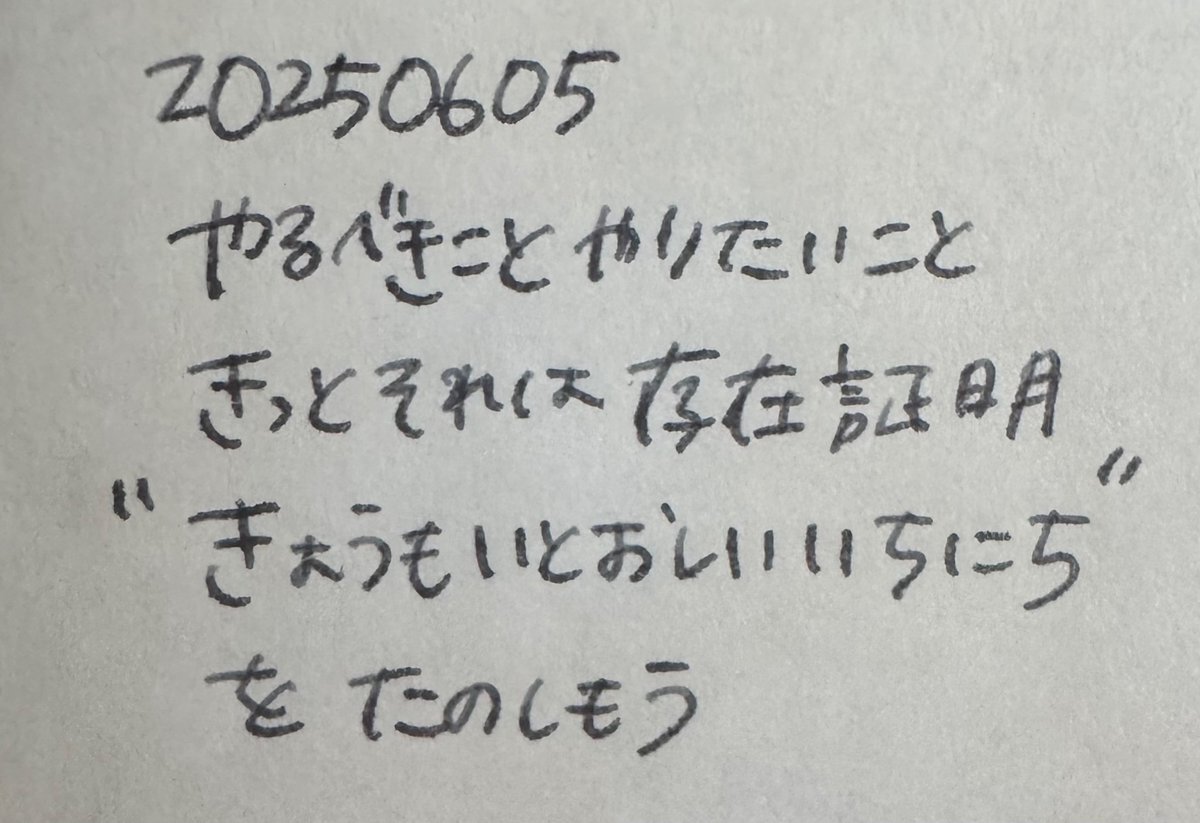 20250605
やるべきこと やりたいこと
きっとそれは 存在証明
"きょうもいとおしいいちにち"
を たのしもう